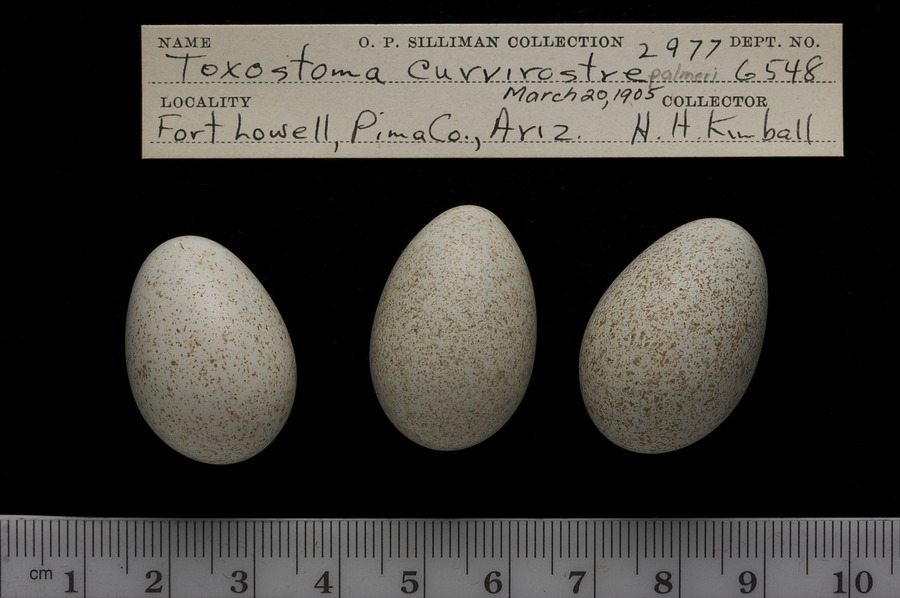 NAME O. P. SILLIMAN COLLECTION 2977 DEPT. NO.
Toxostoma curvirostre palmeri 6548
March 20, 1905
LOCALITY COLLECTOR
Fort Lowell, Pima Co., Ariz. H. H. Kimball
cm 1 2 3 4 5 6 7 8 9 10